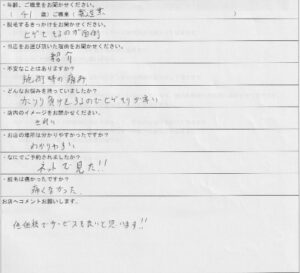 ・年齢、ご職業をお聞かせください。
( 41 歳) ご職業( 製造業 )
・脱毛するきっかけをお聞かせください。
ヒゲをそるのが面倒
・当店をお選び頂いた理由をお聞かせください。
紹介
・不安なことはありますか?
施術時の痛み
・どんなお悩みを持っていましたか?
カミソリ負けするのでヒゲそりが辛い
・店内のイメージをお聞かせください。
きれい
・お店の場所は分かりやすかったですか?
わかりやすい
・なにでご予約されましたか?
ネットで見た!!
・脱毛は痛かったですか?
痛くなかった
お店へコメントお願いします。
低価格でサービスも良いと思います!!